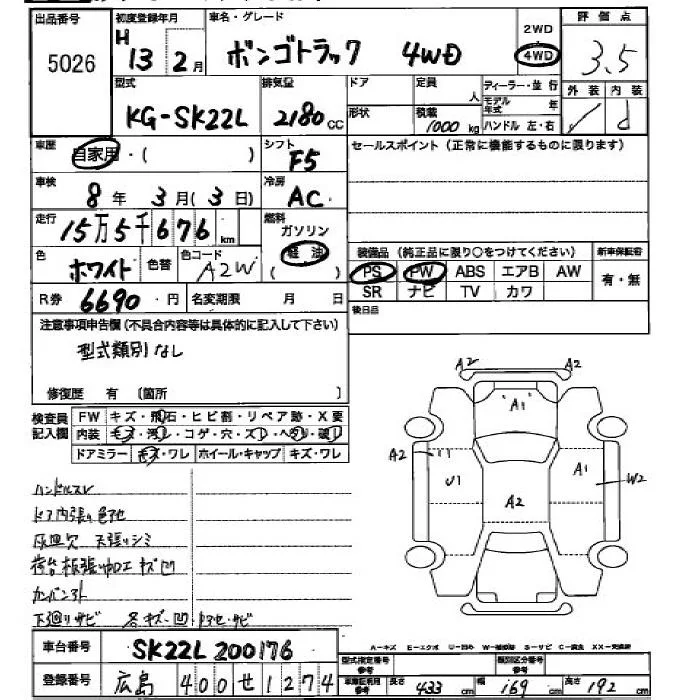 出品番号 初度登録年月 車名・グレード 2WD 評価点
5026 H 13 2月 ボンゴトラック 4WD 4WD 3.5
型式 排気量 ドア 定員 人 ディーラー・並行 外装 内装
KG-SK22L 2180 CC 形状 積載 1000 kg モデル年式 年 ハンドル 左・右 d
車歴 自家用・( ) シフト F5 セールスポイント(正常に機能するものに限ります)
車検 8年 3月(3日) 冷房 AC
走行 15万5千676 km 燃料 ガソリン
軽油
( )
色 ホワイト 色替 色コード A2W 装備品(純正品に限り○をつけてください) 新車保証書
PS PW ABS エアB AW 有・無
R券 6690・円 名変期限 月 日 SR ナビ TV カワ
後日品
注意事項申告欄(不具合内容等は具体的に記入して下さい)
型式類別なし
修復歴 有 〔箇所 〕
検査員記入欄 FW キズ・飛石・ヒビ割・リペア跡・X要
内装 キズ・汚れ・コゲ・穴・スレ・ヘタリ・破れ
ドアミラー キズ・ワレ ホイール・キャップ キズ・ワレ
A2 A2
A1
A2 U1 A2 A1 W2
ハンドルスレ
ドア内張り色アセ
灰皿欠 天張りシミ
荷台板張り加工 キズ凹
カンバン外
下廻りサビ 各キズ・凹
A-キズ E-エクボ U-凹み S-サビ
車台番号 SK22L 200176
型式指定番号 参考 類別区分番号 参考
登録番号 広島 400 せ 1274 車庫証明用 参考 長さ 433 cm 幅 169 cm 高さ 192 cm